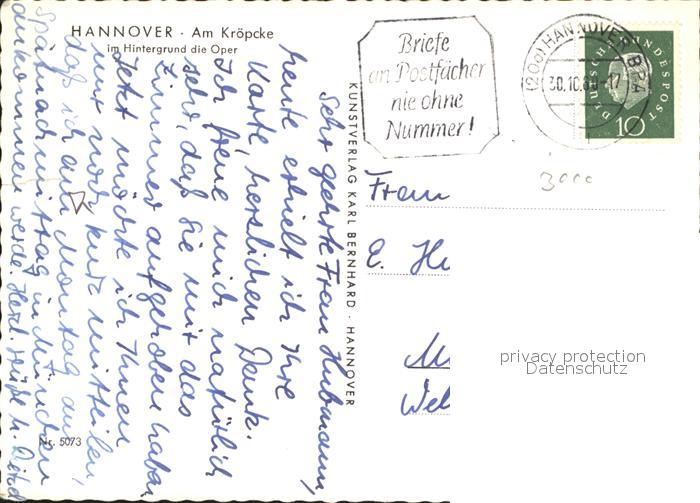 HANNOVER · Am Kröpcke
im Hintergrund die Oper
Briefe
an Postfächer
nie ohne
Nummer!
(20a) HANNOVER BPA
30.10.60-17
DEUTSCHE BUNDESPOST
10
3000
KUNSTVERLAG KARL BERNHARD · HANNOVER
Sehr geehrte Frau Hubmann,
heute erhielt ich Ihre
Karte, herzlichen Dank.
Ich freue mich natürlich
sehr, daß Sie mir das
Zimmer aufgehoben haben.
Jetzt möchte ich Ihnen
nur noch kurz mitteilen,
daß ich am Montag am
Spätnachmittag in München
ankommen werde. Herzl. Grüße
Frau
E. Hu
M
Wel
privacy protection
Datenschutz
Nr. 5073